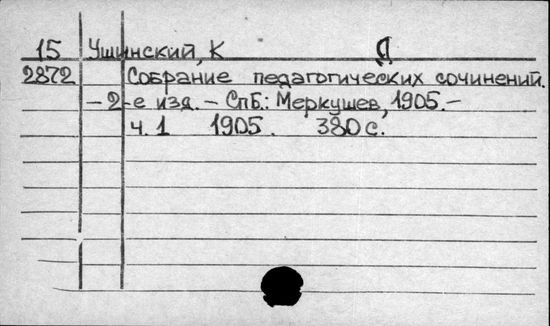 15 Ушинский, К Д
2872 Собрание педагогических сочинений.
– 2-е изд. – СПб.: Меркушев, 1905. –
ч. 1 1905. 380 с.